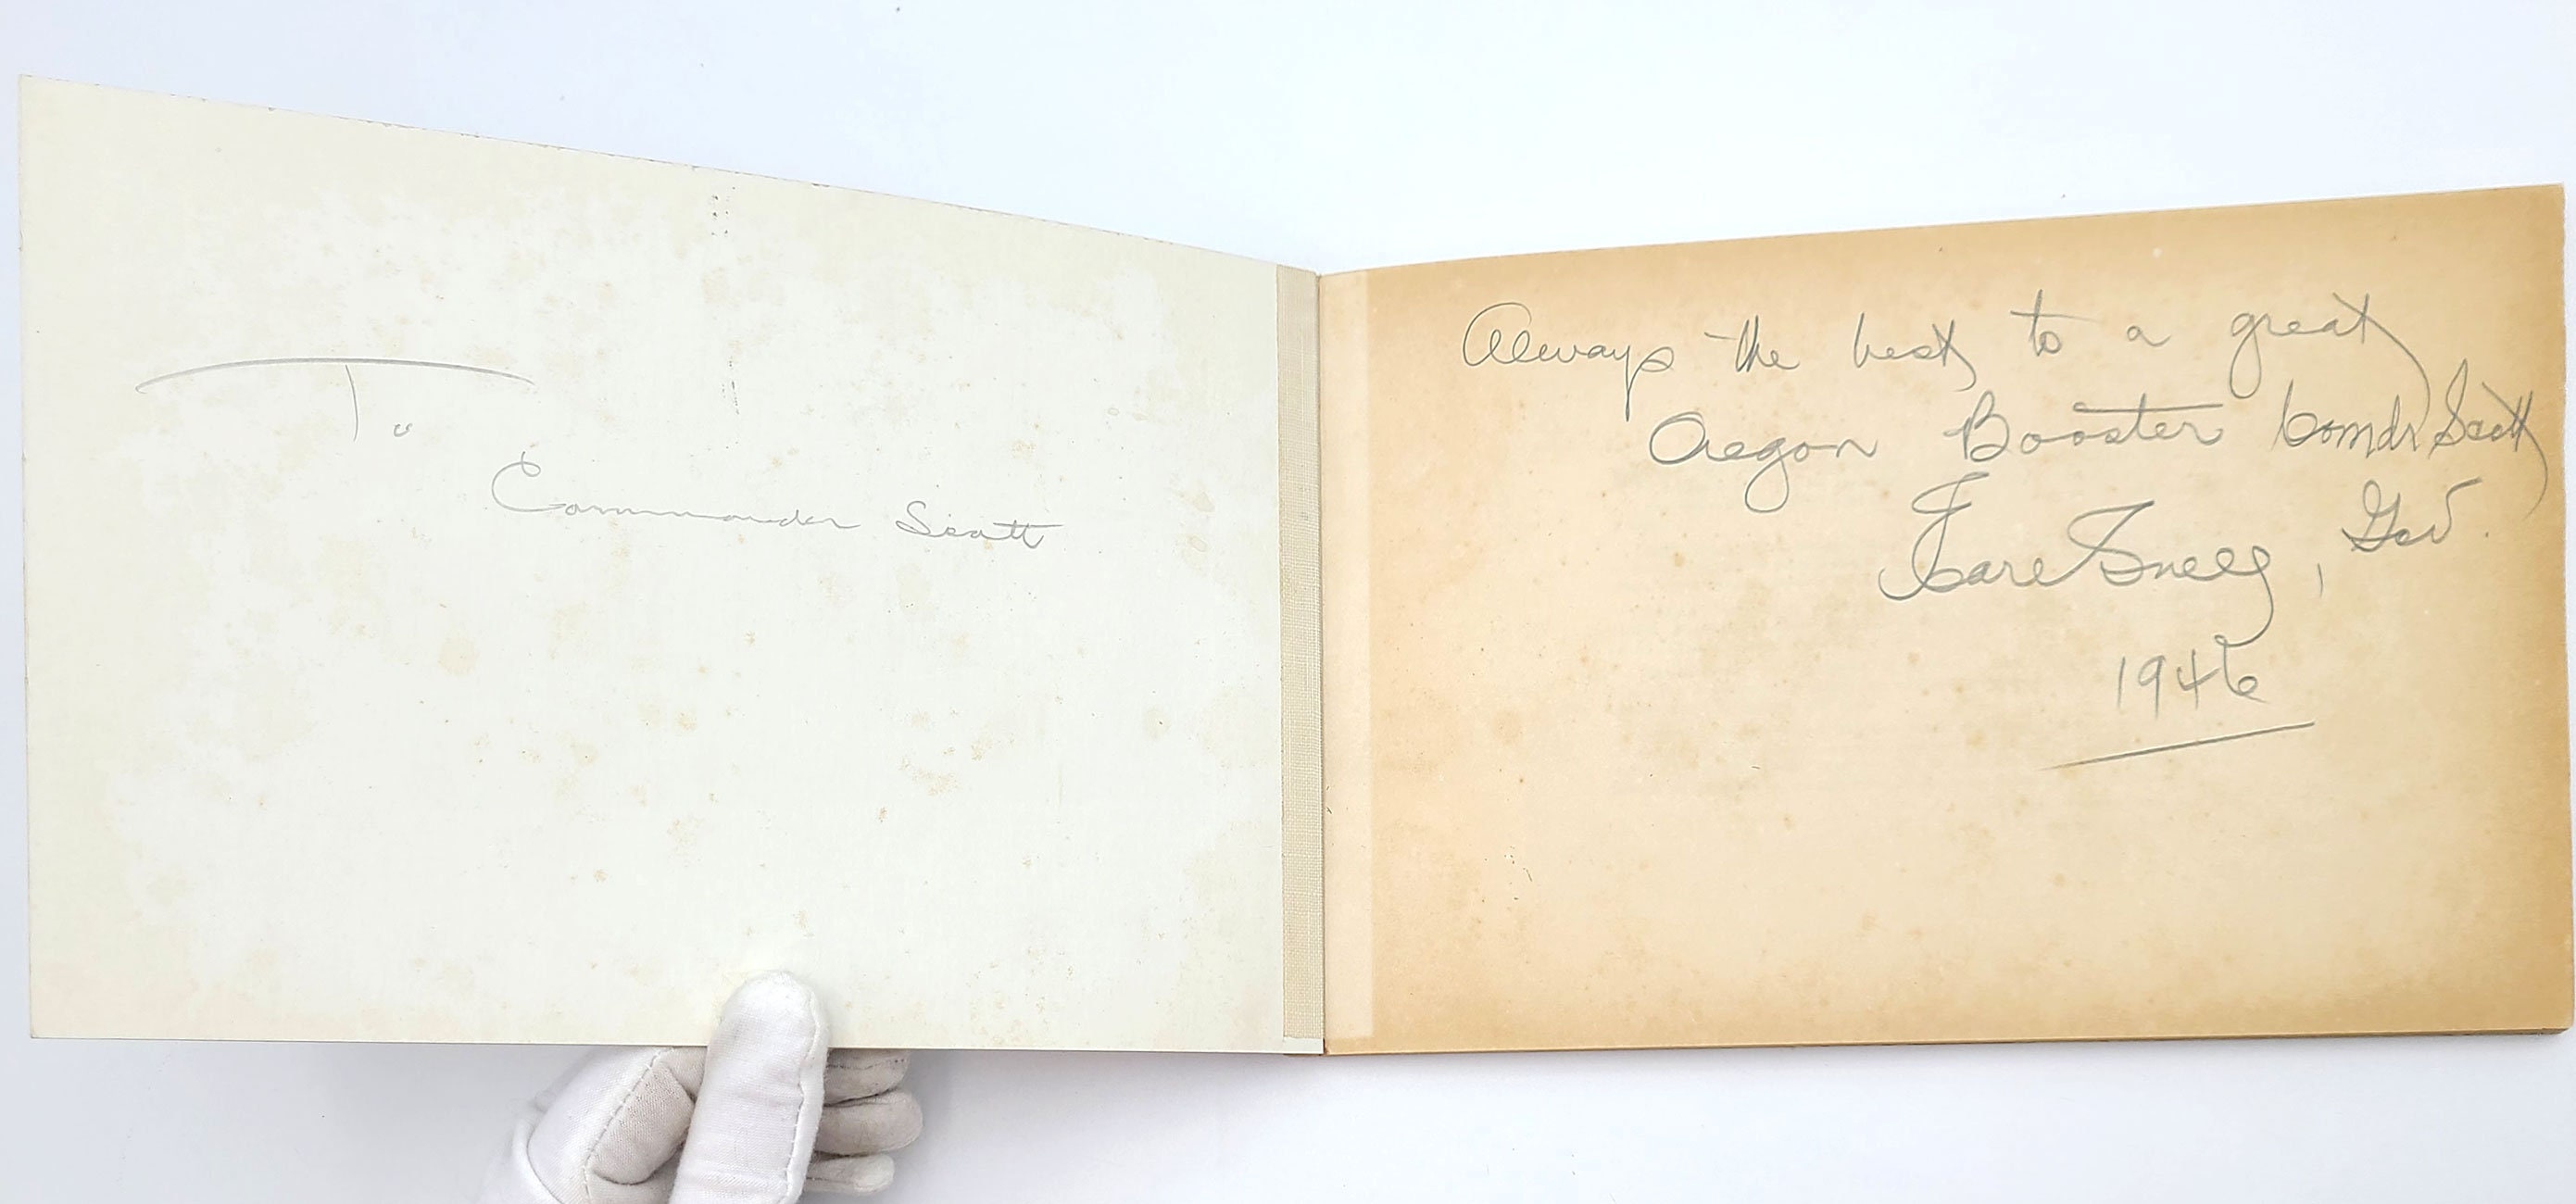 To
Commander Scott
Always the best to a great
Oregon Booster Comdr Scott
Earl Snell, Gov.
1946